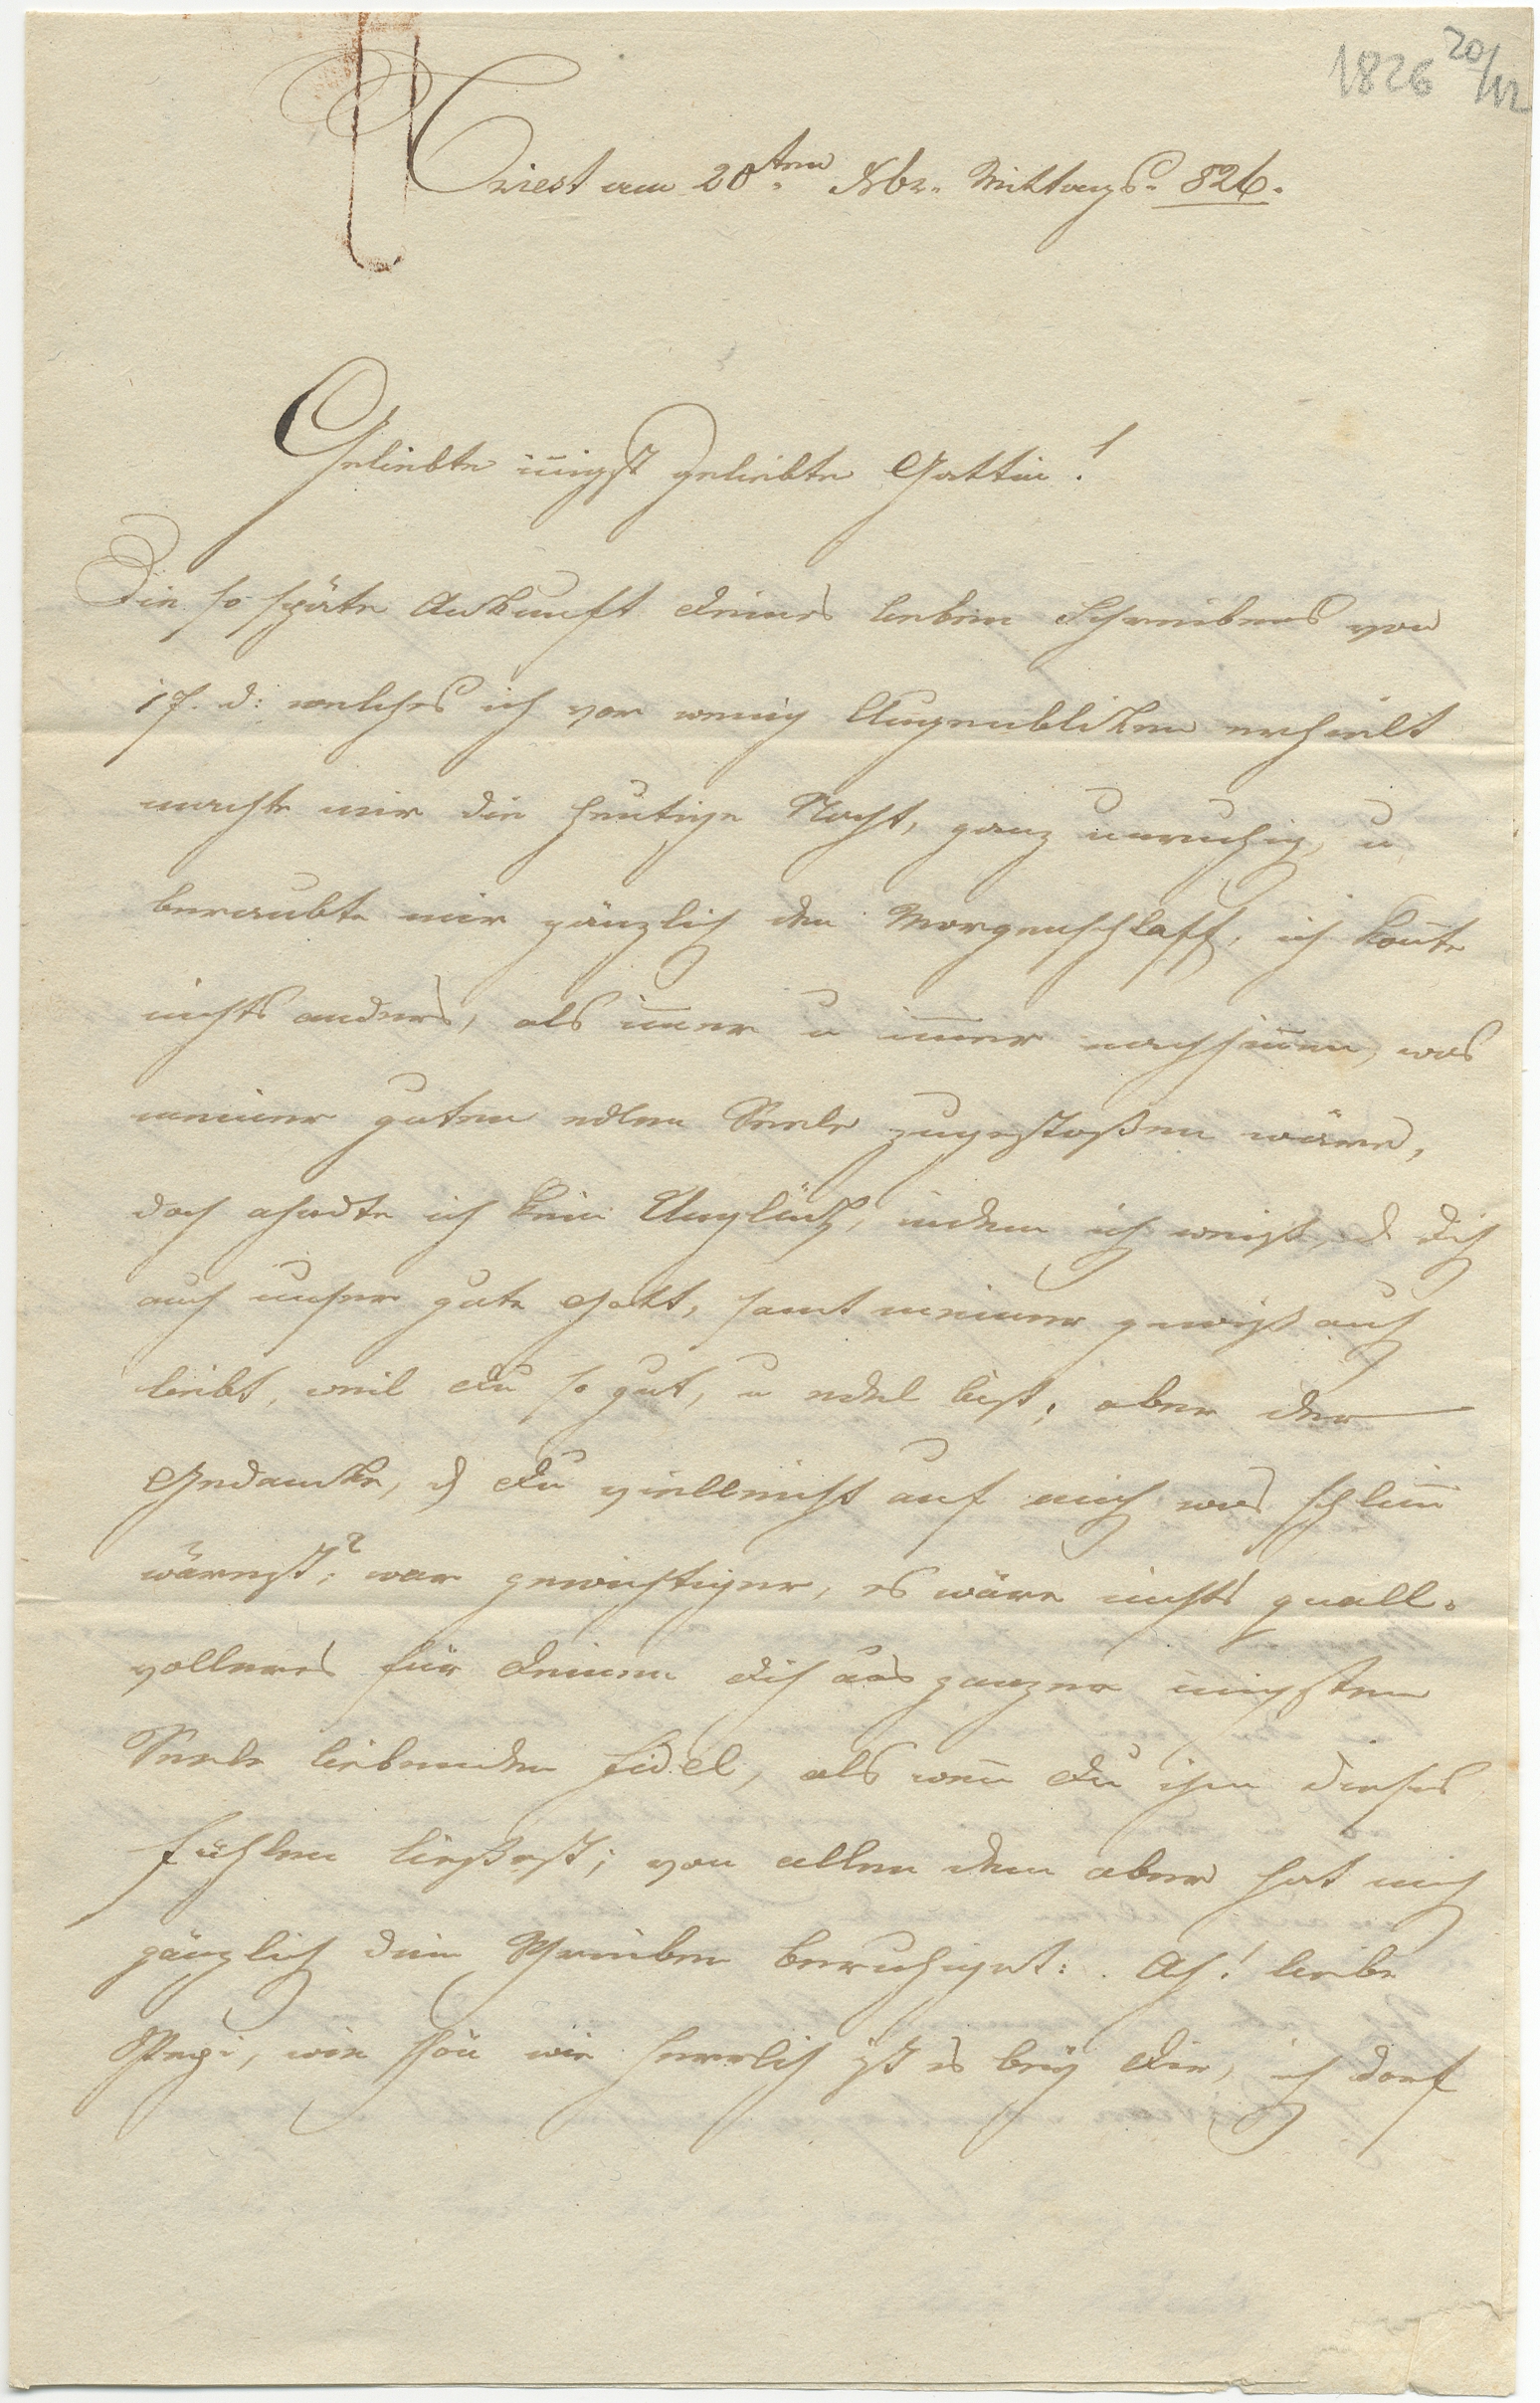 1826 20/12
Triest am 20ten Xbr. Mittags. 826.
Geliebte in̅igst geliebte Gattin!
Die so späte Ankunft deines lieben Schreibens von
17. d: welches ich vor wenig Augenbliken erhielt
machte mir die heutige Nacht, ganz unruhig, u
beraubte mir gänzlich den Morgenschlaff, ich kon̅te
nichts anders, als im̅er u im̅er nachsin̅en, was
meiner guten edlen Seele zugestoßen wäre,
doch ahndte ich kein Unglück, indem ich weist, d Dich
auch unser gute Gott, samt meiner gewiß auch
liebt, weil du so gut, u edel bist; aber der
Gedancke, d du vielleicht auf mich was schlim̅
wärest? war gewichtiger, es wäre nichts quall-
volleres für deinen dich aus ganzer in̅igsten
Seele liebenden Fidel, als wen̅ du ihm dieses
fühlen ließest; von allen dem aber hat mich
gänzlich dein Schreiben beruhiget: . Ach! liebe
Pepi, wie schön wie herrlich ist es bey dir, ich darf